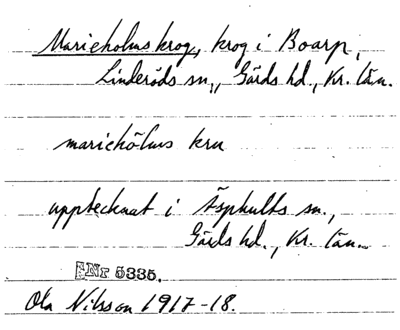 Marieholms krog, krog i Boarp,
Linderöds sn., Gärds hd., Kr. län.
mariehölms kru
upptecknat i Äsphults sn.,
Gärds hd., Kr. län.
Nr 5335.
Ola Nilsson 1917-18.